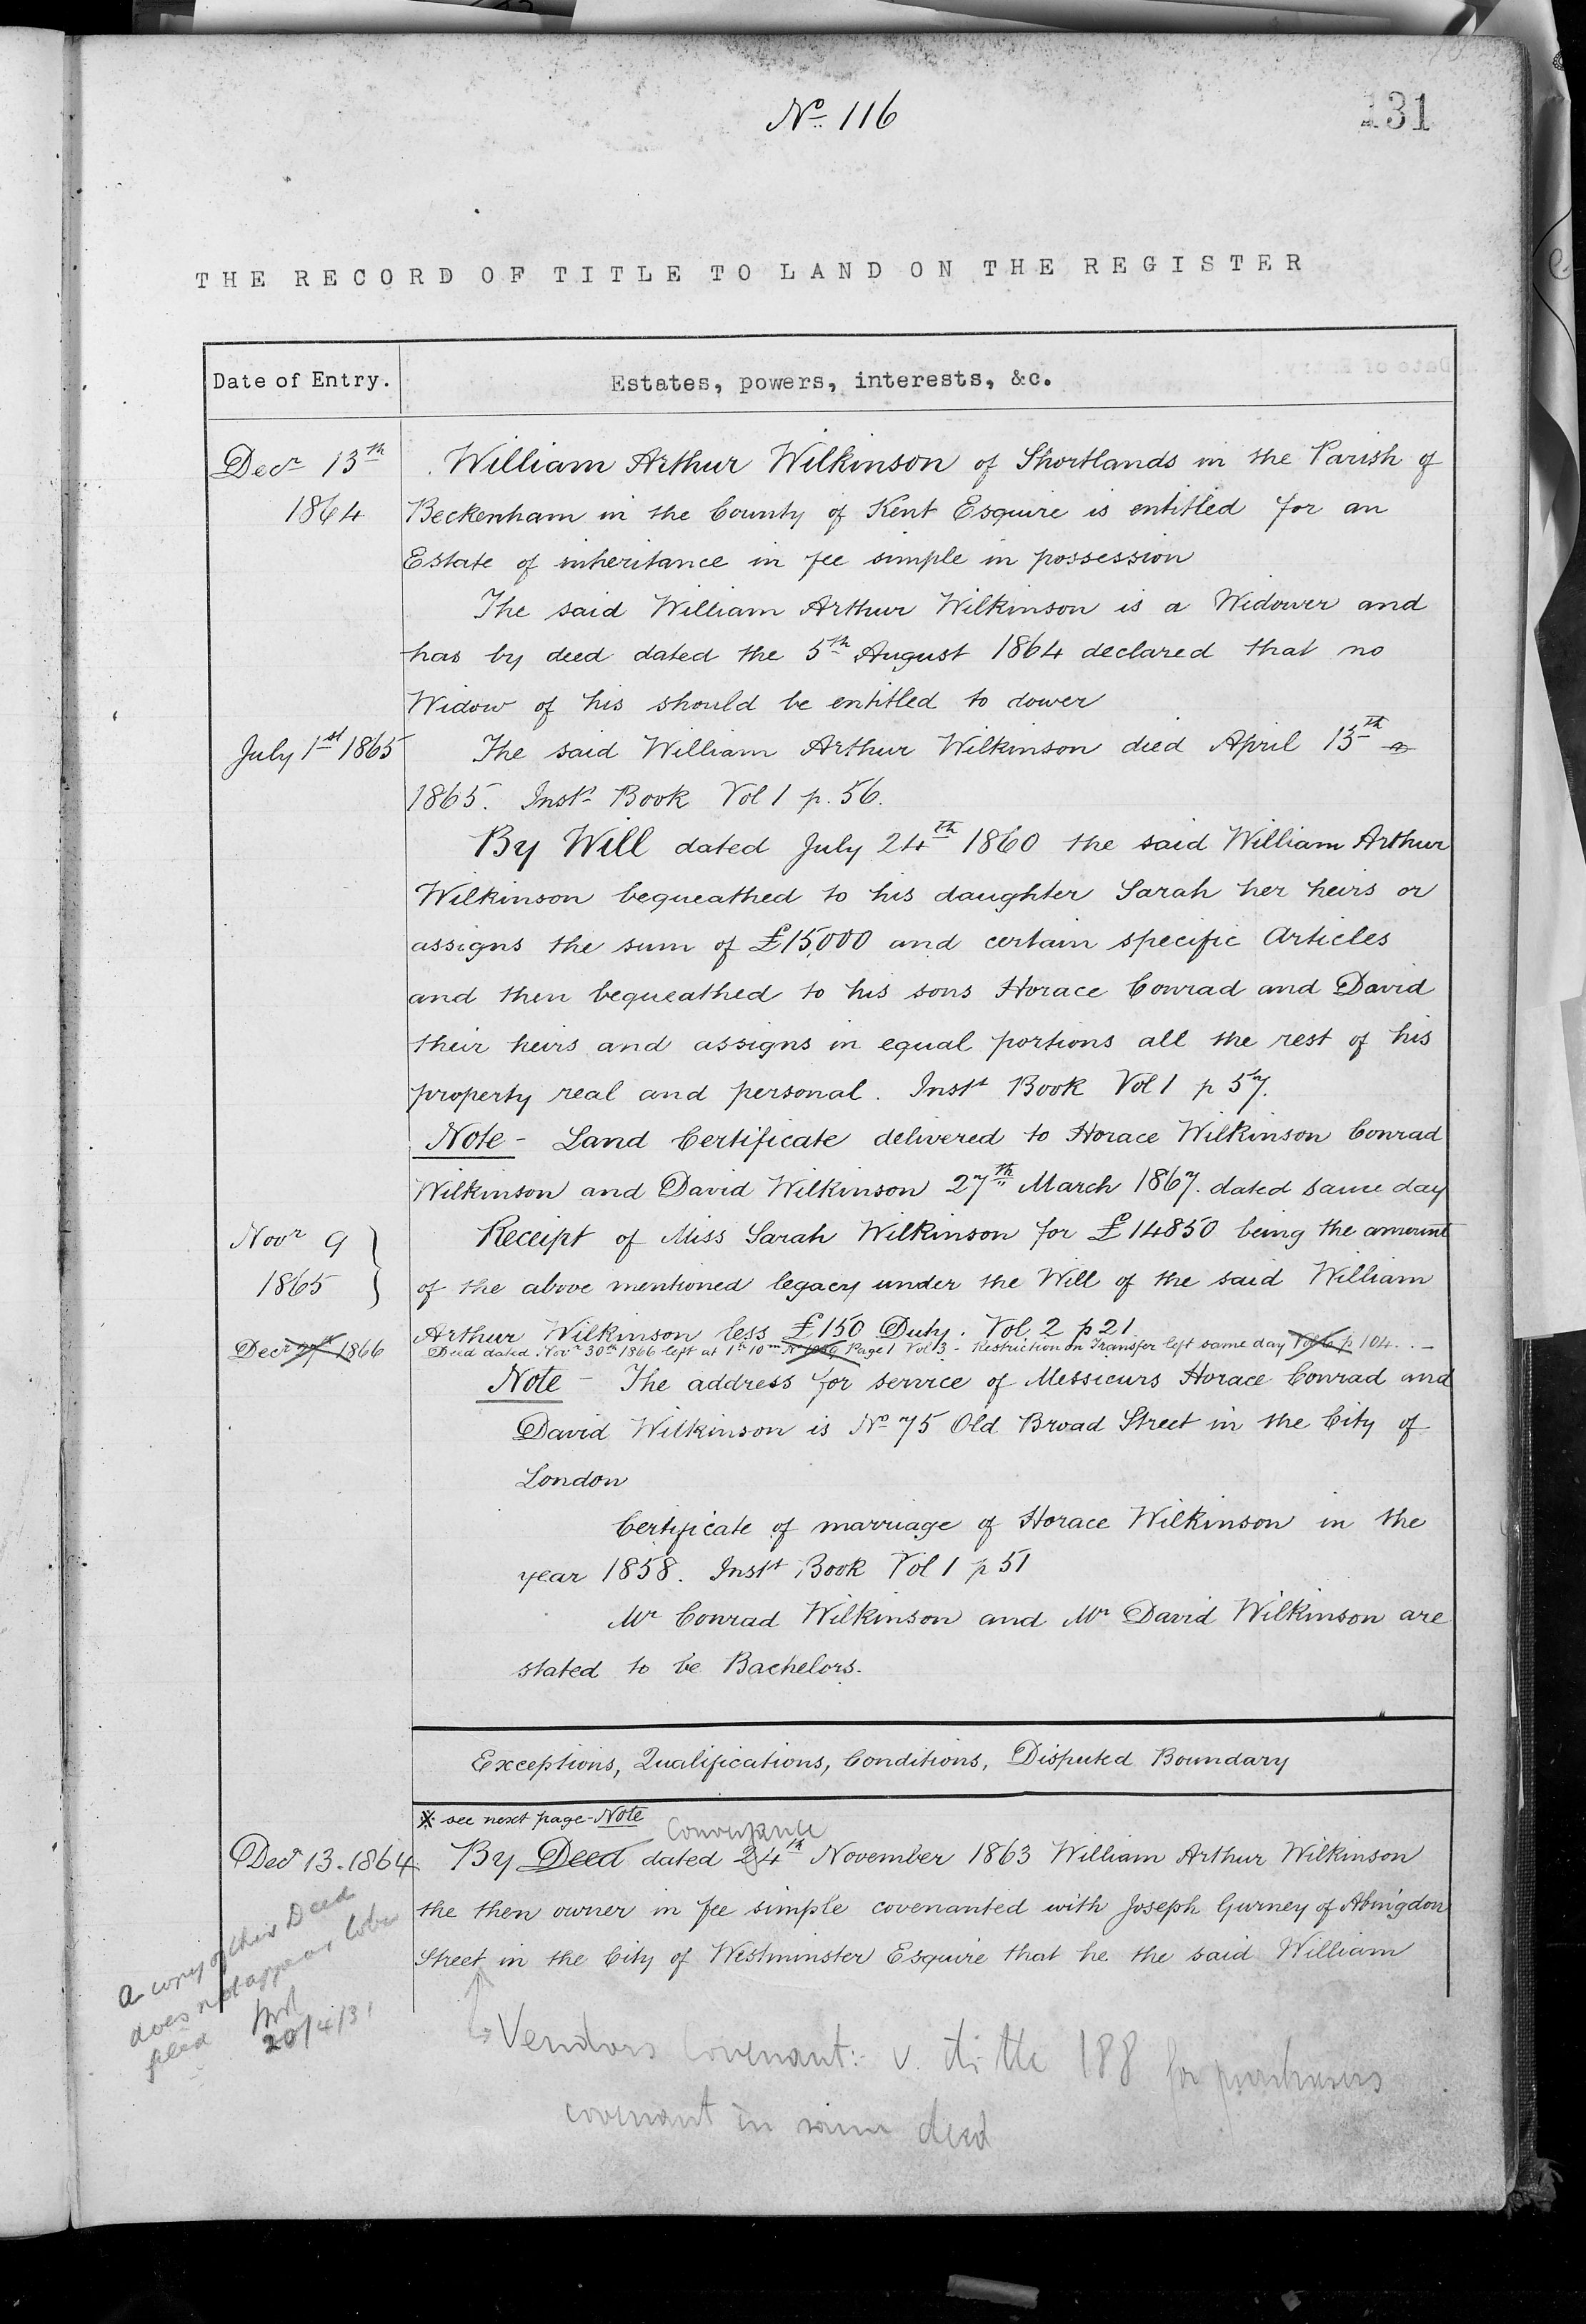 No. 116
131
THE RECORD OF TITLE TO LAND ON THE REGISTER
Date of Entry.
Estates, powers, interests, &c.
Decr 13th
1864
William Arthur Wilkinson of Shortlands in the Parish of
Beckenham in the County of Kent Esquire is entitled for an
Estate of inheritance in fee simple in possession
The said William Arthur Wilkinson is a Widower and
has by deed dated the 5th August 1864 declared that no
Widow of his should be entitled to dower
July 1st 1865
The said William Arthur Wilkinson died April 13th
1865. Inst. Book Vol 1 p. 56.
By Will dated July 24th 1860 the said William Arthur
Wilkinson bequeathed to his daughter Sarah her heirs or
assigns the sum of £15,000 and certain specific Articles
and then bequeathed to his sons Horace Conrad and David
their heirs and assigns in equal portions all the rest of his
property real and personal. Instt Book Vol 1 p 57.
Note - Land Certificate delivered to Horace Wilkinson Conrad
Wilkinson and David Wilkinson 27th March 1867. dated same day
Novr 9
1865
Receipt of Miss Sarah Wilkinson for £14850 being the amount
of the above mentioned legacy under the Will of the said William
Arthur Wilkinson less £150 Duty. Vol. 2 p 21.
Decr 1866
Deed dated Novr 30th 1866 left at 1h 10m Page 1 Vol 3 - Restriction on Transfer left same day p 104. . -
Note - The address for service of Messieurs Horace Conrad and
David Wilkinson is No 75 Old Broad Street in the City of
London
Certificate of marriage of Horace Wilkinson in the
year 1858. Instt Book Vol 1 p 51
Mr Conrad Wilkinson and Mr David Wilkinson are
stated to be Bachelors.
Exceptions, Qualifications, Conditions, Disputed Boundary
※ see next page - Note
Conveyance
Decr 13. 1864
By Deed dated 24th November 1863 William Arthur Wilkinson
the then owner in fee simple covenanted with Joseph Gurney of Abingdon
Street in the City of Westminster Esquire that he the said William
A copy of this Deed
does not appear to be
filed
20/4/31
Vendors Covenant:- v. title 188 for purchasers
covenant in same deed